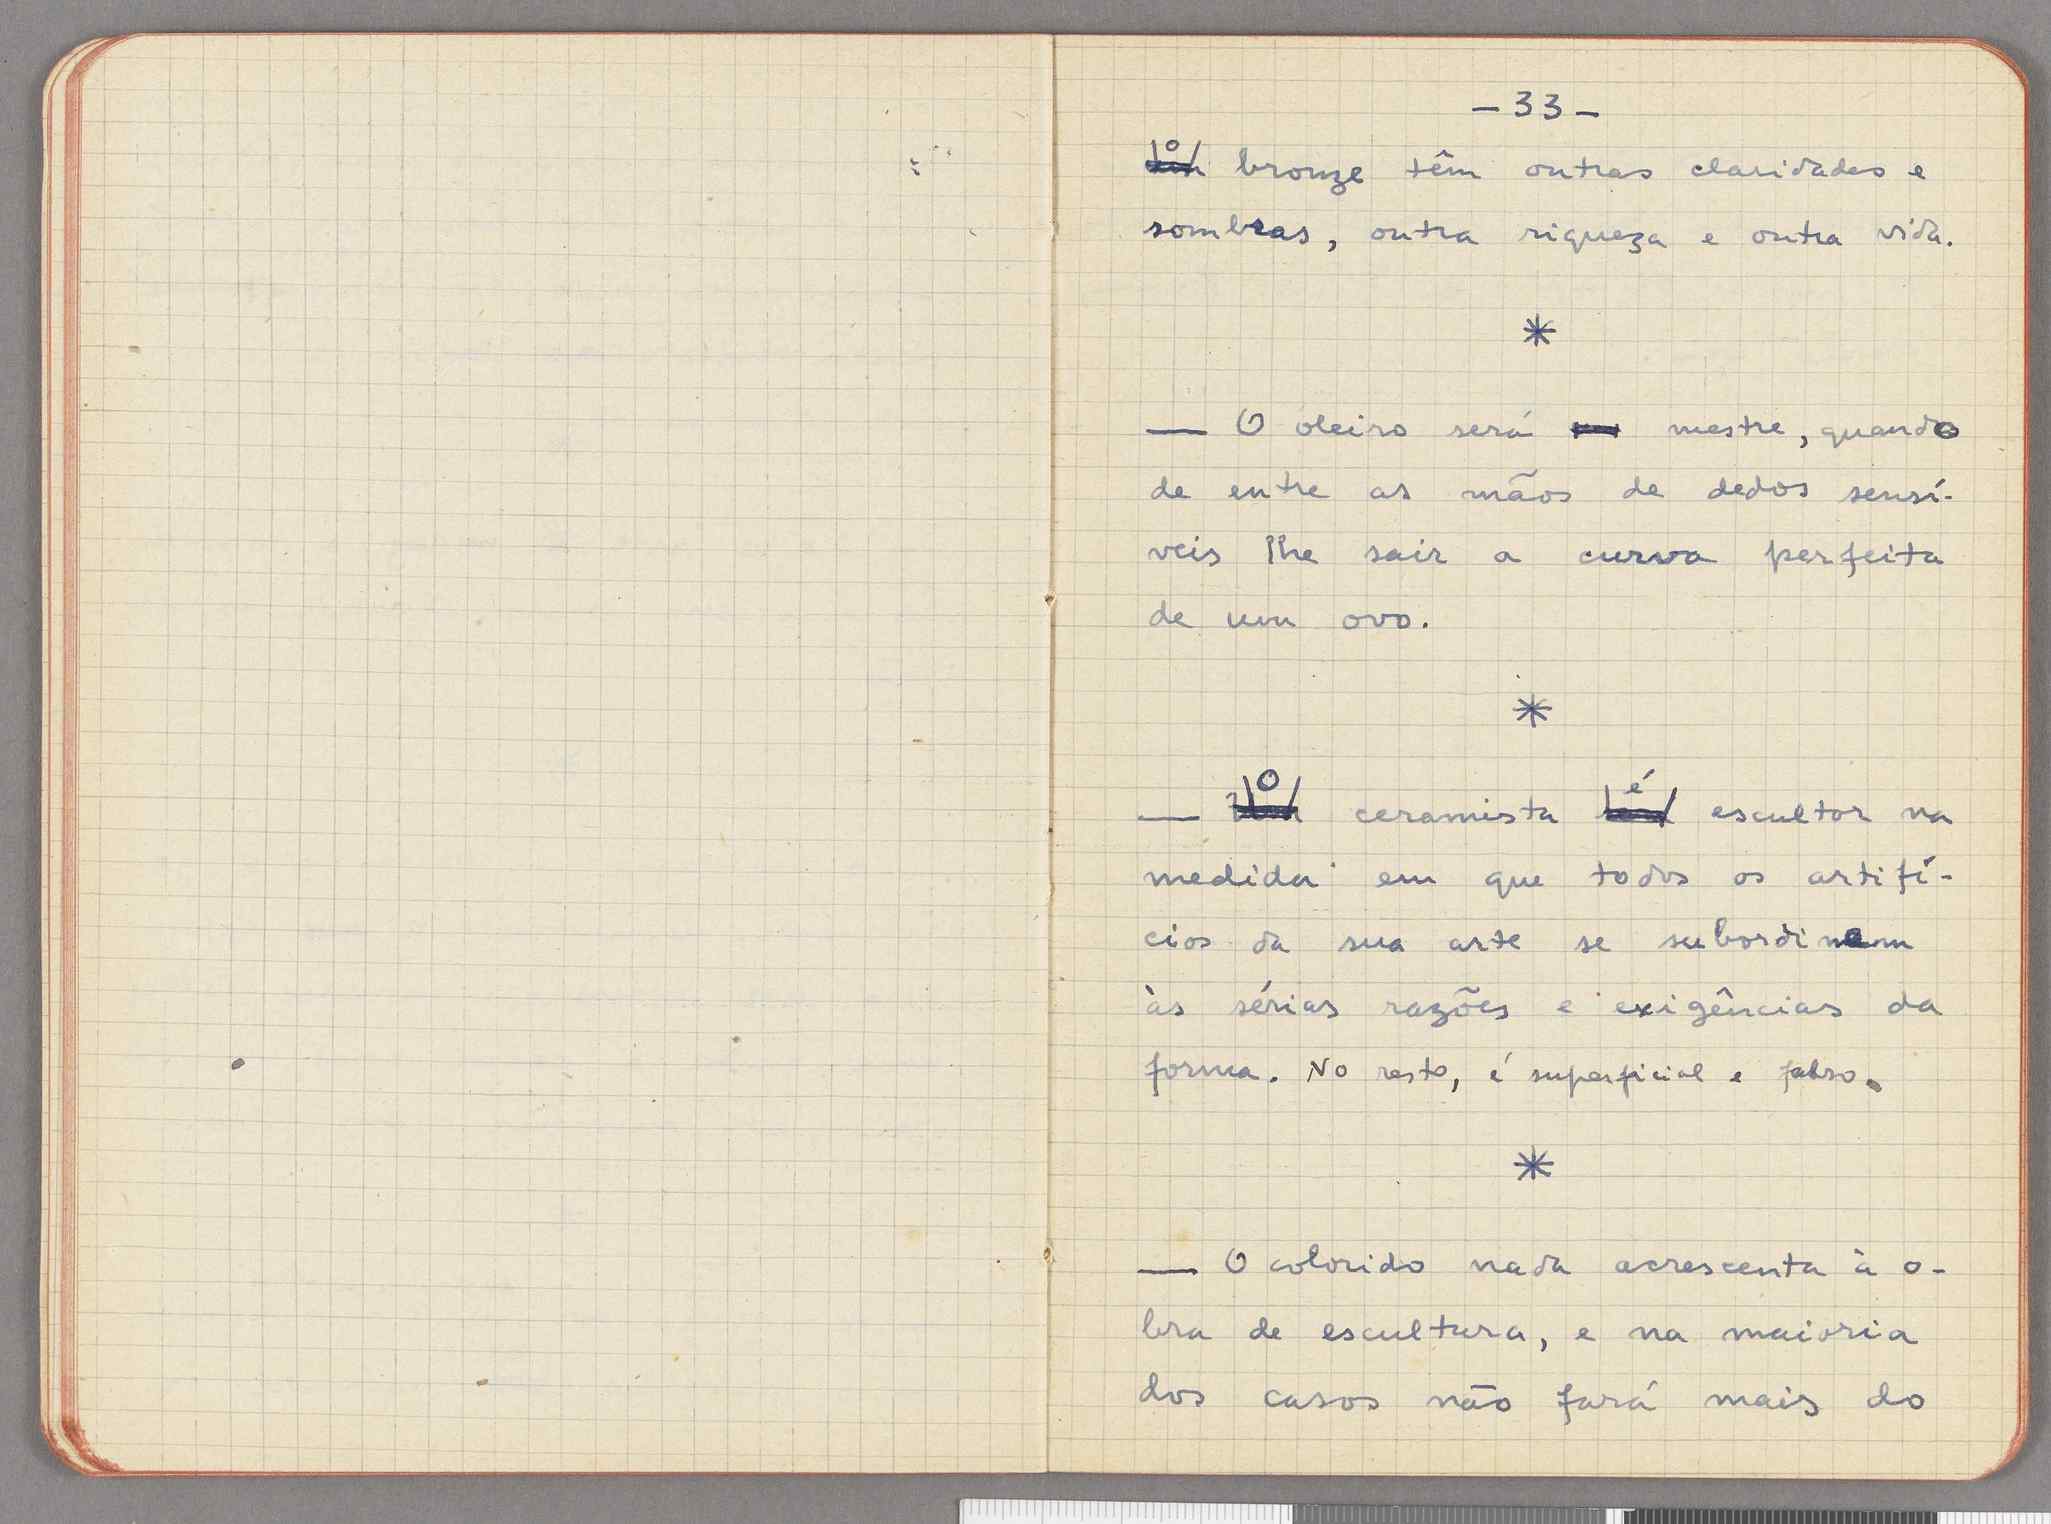 -33-
o bronze têm outras claridades e
sombras, outra riqueza e outra vida.
*
— O oleiro será mestre, quando
de entre as mãos de dedos sensí-
veis lhe sair a curva perfeita
de um ovo.
*
— O ceramista é escultor na
medida em que todos os artifí-
cios da sua arte se subordinem
às sérias razões e exigências da
forma. No resto, é superficial e falso.
*
— O colorido nada acrescenta à o-
bra de escultura, e na maioria
dos casos não fará mais do